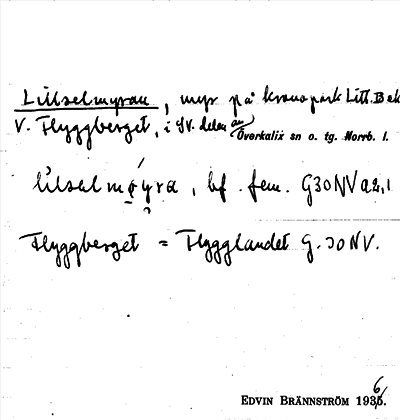 Lillselmyran, myr på kronopark Litt. B ek
V. Flyggberget, i SV. delen av Överkalix sn o. tg. Norrb. l.
lilselmǫ́yra, bf. fem. G30NV a2,1
Flyggberget = Flygglandet G.30NV.
EDVIN BRÄNNSTRÖM 1936.